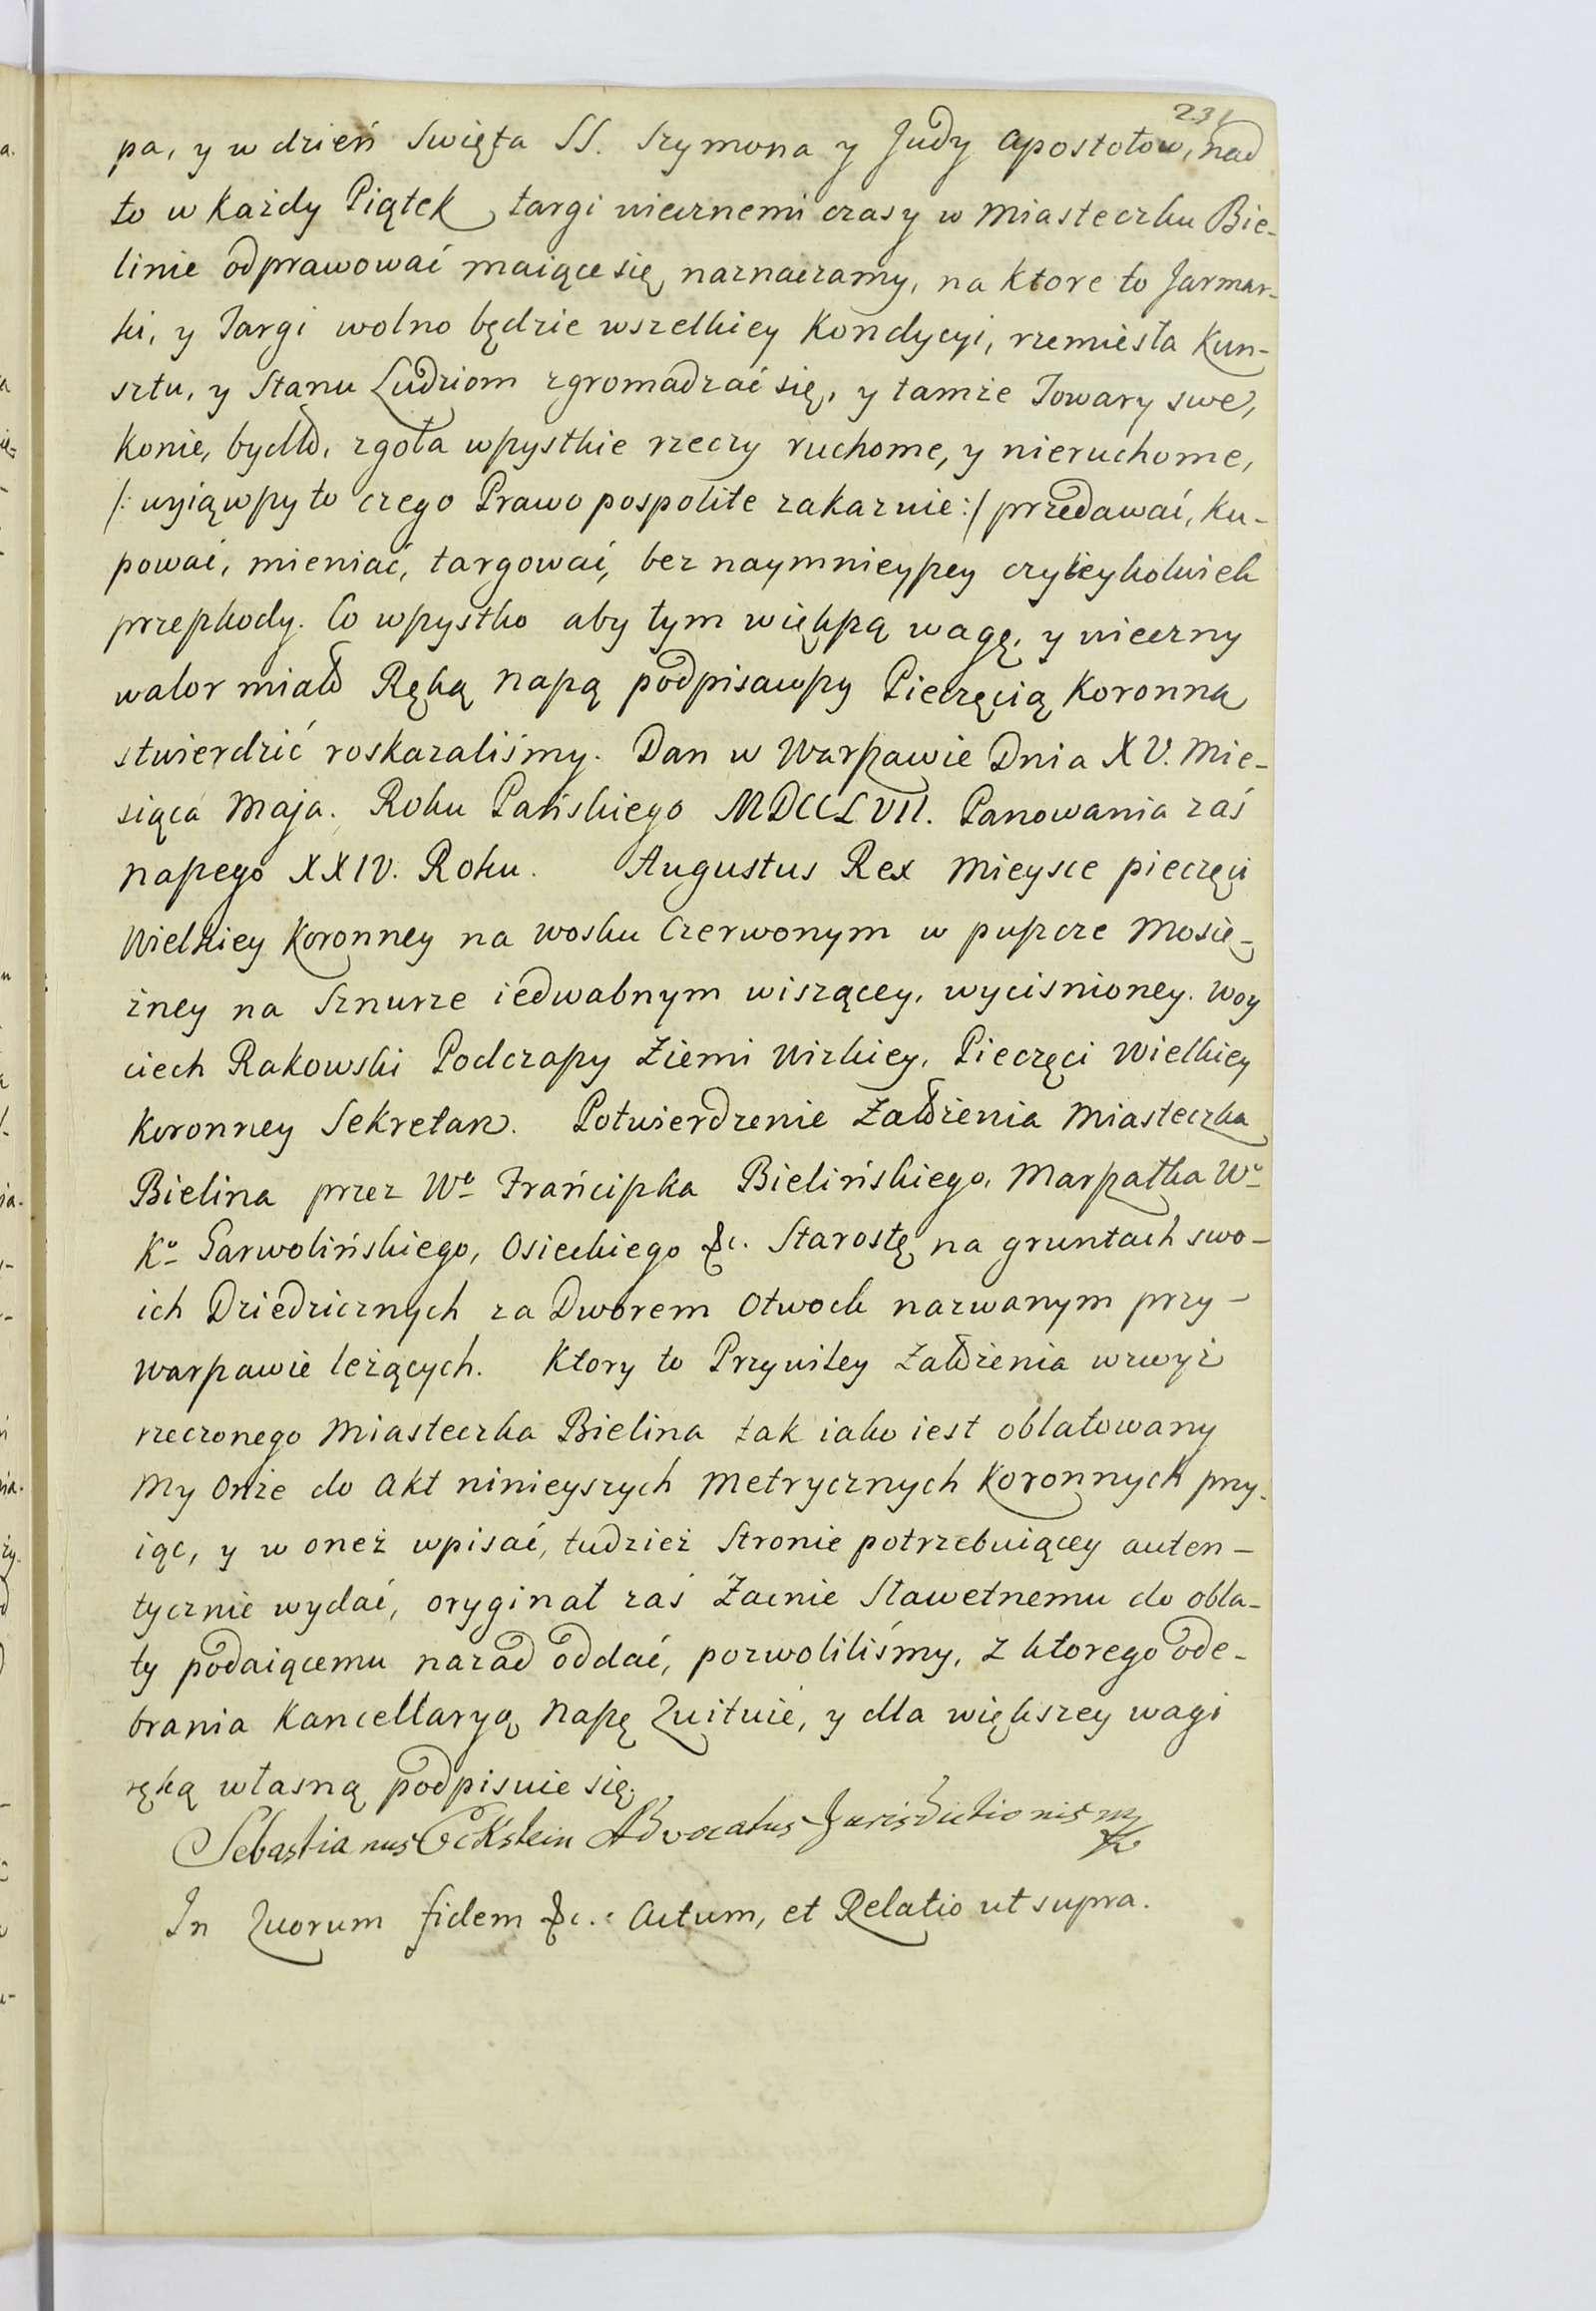 231
pa, y w dzień Swięta SS. Szymona y Judy Apostołow, nad
to w każdy Piątek, targi wiecznemi czasy w Miasteczku Bie-
linie odprawować maiące się naznaczamy, na ktore to Jarmar-
ki, y Targi wolno będzie wszelkiey Kondycyi, rzemiesła Kun-
sztu, y Stanu Ludziom zgromadzać się, y tamże Towary swe,
Konie, bydło, zgoła wszystkie rzeczy ruchome, y nieruchome,
/: wyiąwszy to czego Prawo pospolite zakazuie :/ przedawać, ku-
pować, mieniać, targować, bez naymnieyszey czyieykolwiek
przeszkody. Co wszystko aby tym większą wagę, y wieczny
walor miało Ręką naszą podpisawszy Pieczęcią Koronną
stwierdzić roskazaliśmy. Dan w Warszawie Dnia XV. Mie-
siąca Maja. Roku Pańskiego MDCCLVII. Panowania zaś
naszego XXIV. Roku. Augustus Rex Mieysce pieczęci
Wielkiey Koronney na wosku Czerwonym w puszcze Mosię-
żney na Sznurze iedwabnym wiszącey, wycisnioney. Woy
ciech Rakowski Podczaszy Ziemi Wizkiey, Pieczęci Wielkiey
Koronney Sekretarz. Potwierdzenie Założenia Miasteczka
Bielina przez Wo Frańciszka Bielińskiego, Marszałka Wo
Ko Garwolińskiego, Osieckiego &c. Starostę na gruntach swo-
ich Dziedzicznych za Dworem Otwock nazwanym przy-
Warszawie leżących. Ktory to Przywiley Założenia wzwyż
rzeczonego Miasteczka Bielina tak iako iest oblatowany
My Onże do Akt ninieyszych Metrycznych Koronnych przy-
iąc, y w oneż wpisać, tudzież Stronie potrzebuiącey auten-
tycznie wydać, oryginał zaś Zacnie Sławetnemu do obla-
ty podaiącemu nazad oddać, pozwoliliśmy, z ktorego ode-
brania Kancellaryą Naszę Quituie, y dla większey wagi
ręką własną podpisuie się.
Sebastianus Eckstein Advocatus Jurisdictionis
In Quorum fidem &c. Actum, et Relatio ut supra.